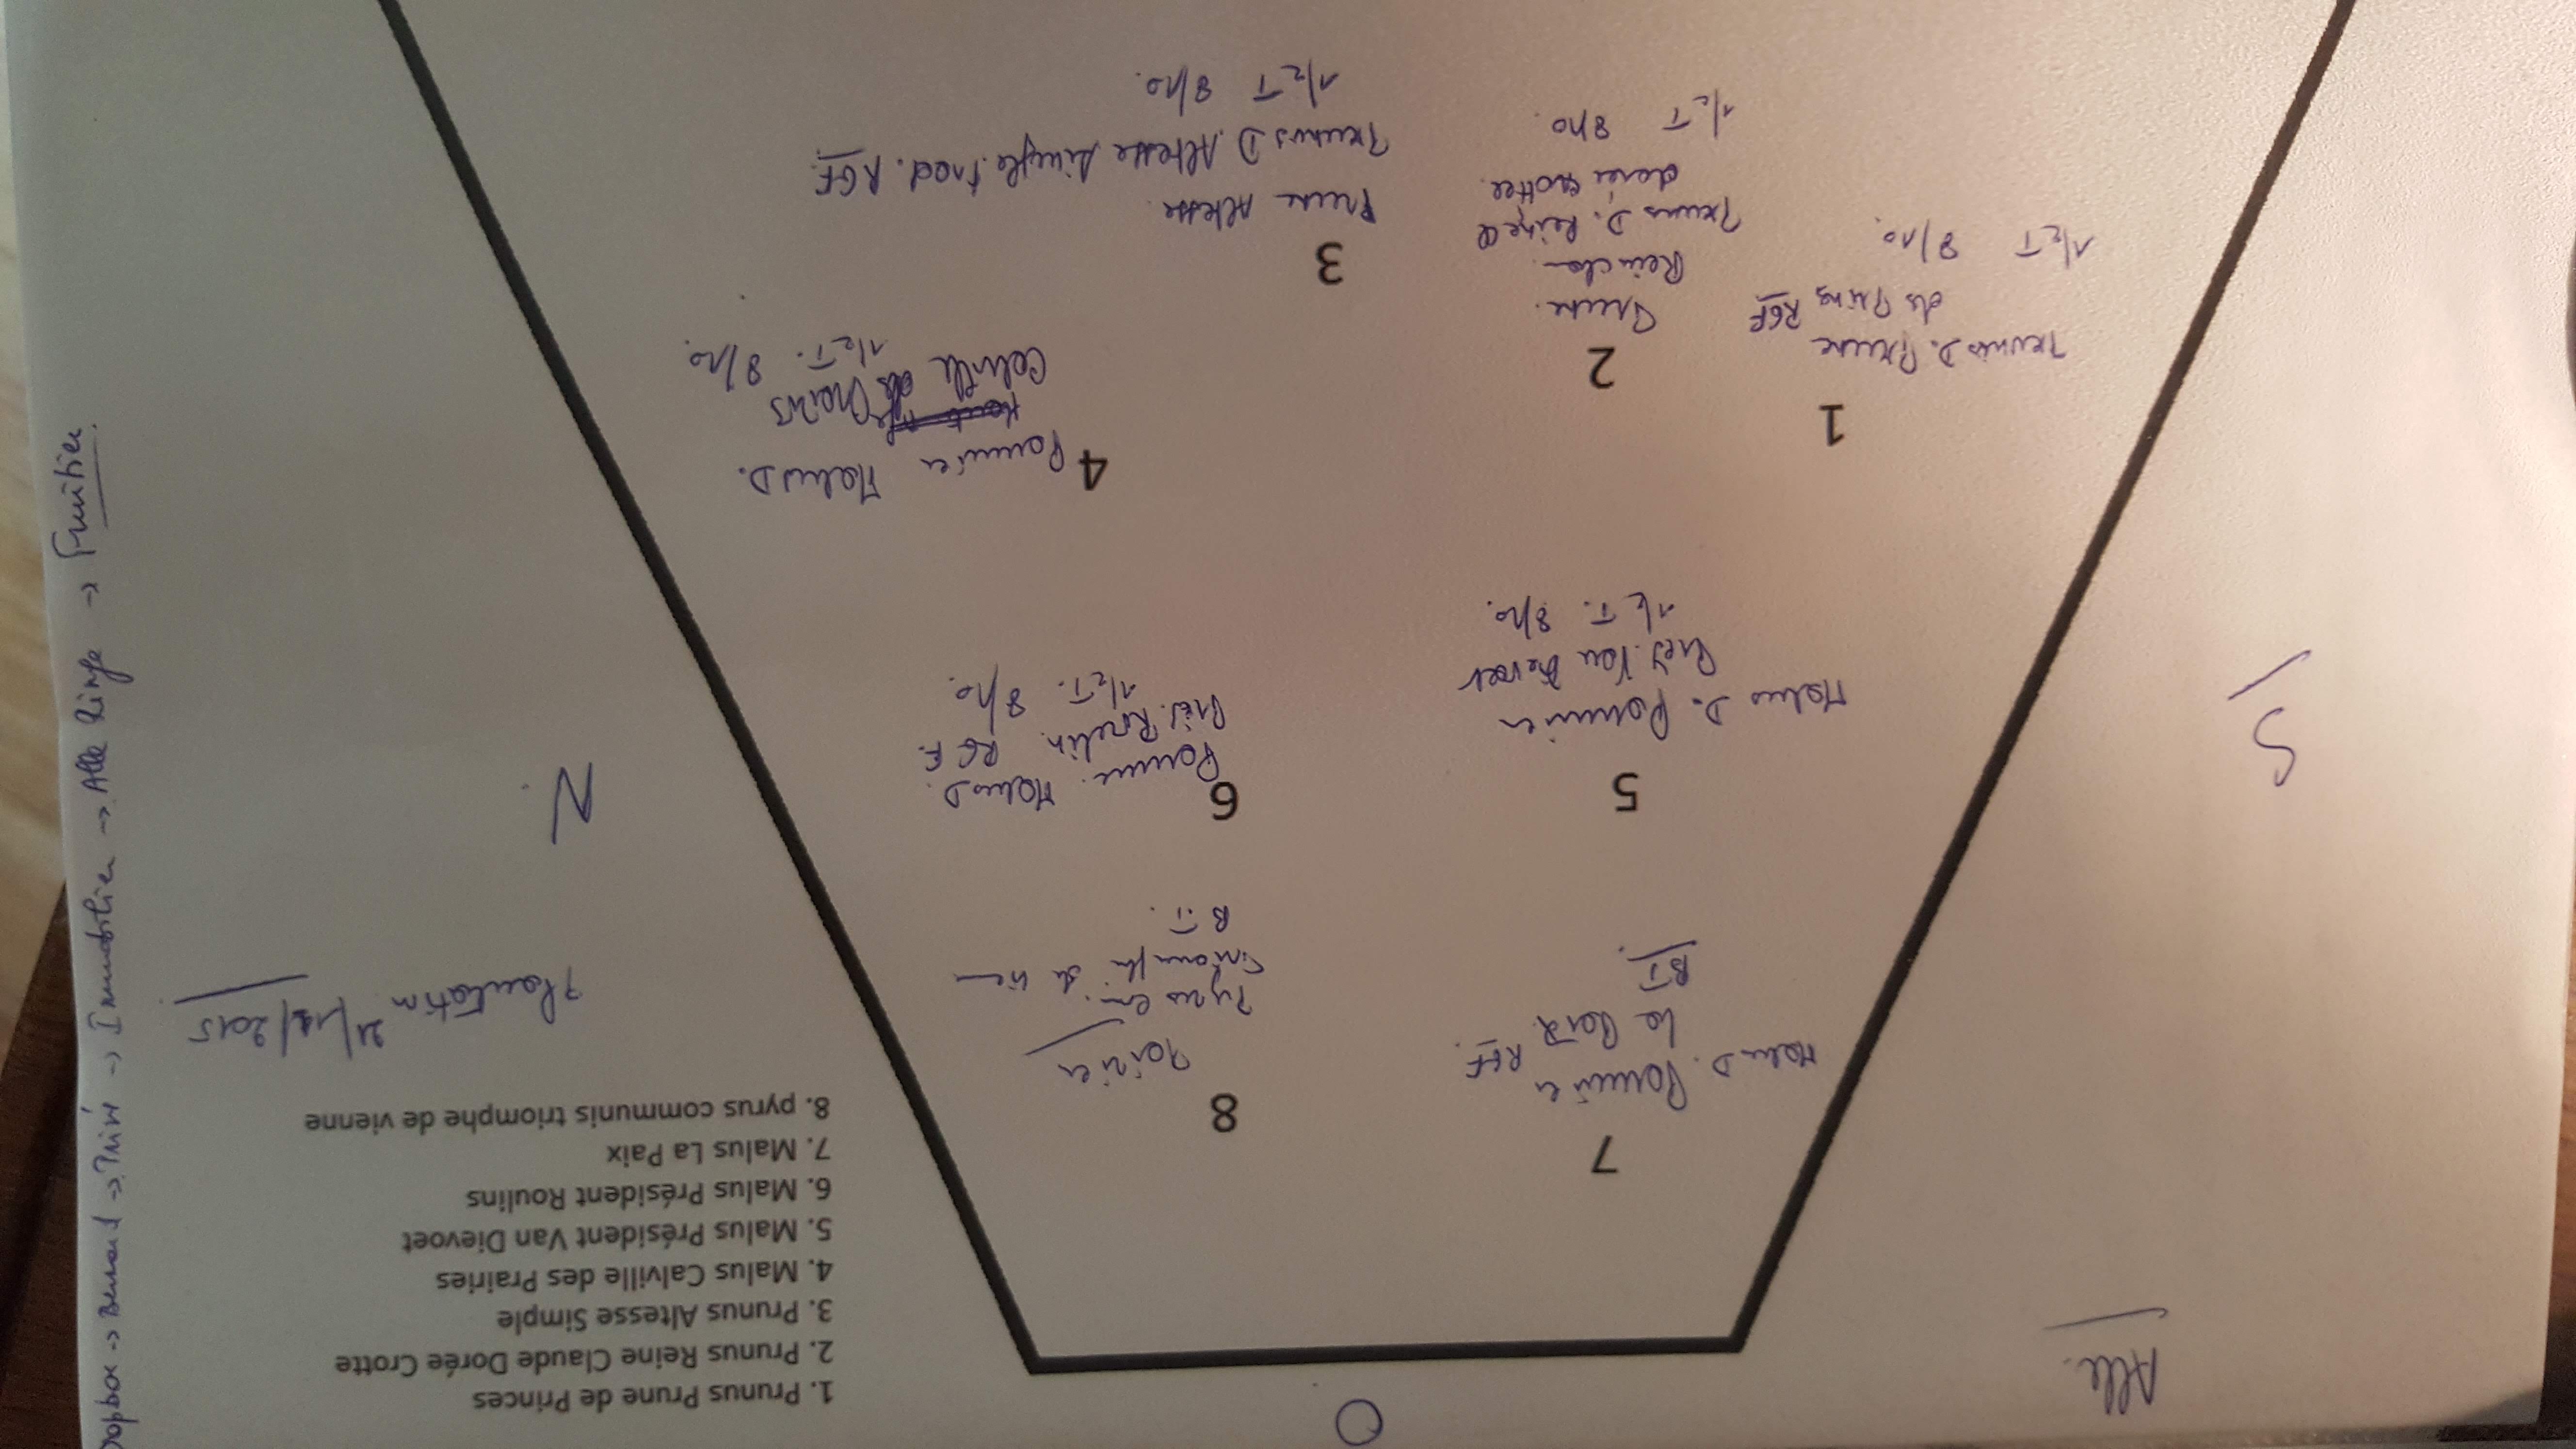 Alle.
O
1. Prunus Prune de Princes
2. Prunus Reine Claude Dorée Crotte
3. Prunus Altesse Simple
4. Malus Calville des Prairies
5. Malus Président Van Dievoet
6. Malus Président Roulins
7. Malus La Paix
8. pyrus communis triomphe de vienne
Plantation 21/12/2015
7
Malus D. Pommier
La Paix RGF.
BT.
8
Poirier
Pyrus
BT.
S
N.
5
Malus D. Pommier
Prés. Van
1/2 T. 8/10.
6
Pomm. Malus D.
RGF.
Prés. Roulin
1/2 T. 8/10.
4
Pommier Malus D.
Calville des Prairies
1/2 T. 8/10.
1
Prunus D. Prune
des Princ RGF
1/2 T 8/10.
2
Prune.
Reineclo.
Prunus D. Reine Cl
dorée crottée.
1/2 T 8/10
3
Prune Altesse.
Prunus D Altesse Simple. RGF.
1/2 T 8/10.
Dropbox → Bernard → Privé → Immobilier → Alle Linge → Fruitier.